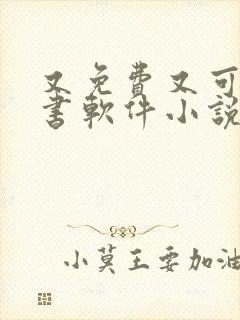 又免費又可
書軟件小說
小莫王要加油